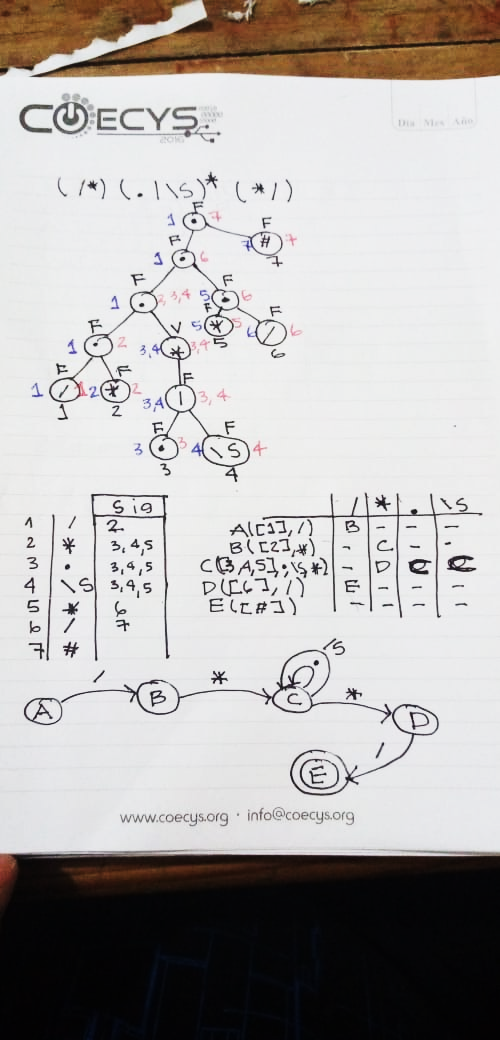 COECYS
2016
Día Mes Año
(/*)(.|\S)*(*/)
F
1 • 7
F
7 # 7
7
F
1 • 6
F
1 • 3,3,4
F
5 • 6
F
1 • 2
V
3,4 * 3,4
F
5 * 5
5
F
6 / 6
6
F
1 / 1
1
F
2 * 2
2
F
3,4 | 3,4
F
3 • 3
3
F
4 \S 4
4
Sig
1 / 2
2 * 3,4,5
3 • 3,4,5
4 \S 3,4,5
5 * 6
6 / 7
7 #
/ * . \S
A([1],/) B - - -
B([2],*) - C - -
C([3,4,5],•,\S,*) - D C C
D([6],/) E - - -
E([#]) - - - -
A / B * C • \S * D / E
www.coecys.org · info@coecys.org